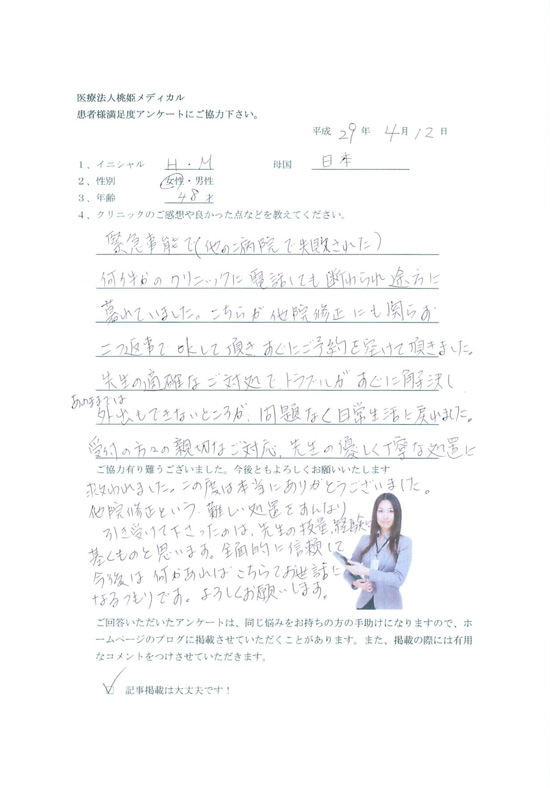 医療法人桃姫メディカル
患者様満足度アンケートにご協力下さい。
平成 29 年 4 月 12 日
1、イニシャル H・M 母国 日本
2、性別 女性・男性
3、年齢 48才
4、クリニックのご感想や良かった点などを教えてください。
緊急事態で(他の病院で失敗された)
何件かのクリニックに電話しても断わられ途方に
暮れていました。こちらが他院修正にも関らず
二つ返事でOKして頂きすぐにご予約を受けて頂きました。
先生の適確なご対処でトラブルがすぐに解決し
あのままでは
外出もできないところが、問題なく日常生活に戻れました。
受付の方々の親切なご対応、先生の優しく丁寧な処置に
ご協力有り難うございました。今後ともよろしくお願いいたします
救われました。この度は本当にありがとうございました。
他院修正という、難しい処置をすんなり
引き受けて下さったのは、先生の技量、経験に
基くものと思います。全面的に信頼して
今後は何かあればこちらでお世話に
なるつもりです。よろしくお願いします。
ご回答いただいたアンケートは、同じ悩みをお持ちの方の手助けになりますので、ホ
ームページのブログに掲載させていただくことがあります。また、掲載の際には有用
なコメントをつけさせていただきます。
記事掲載は大丈夫です!